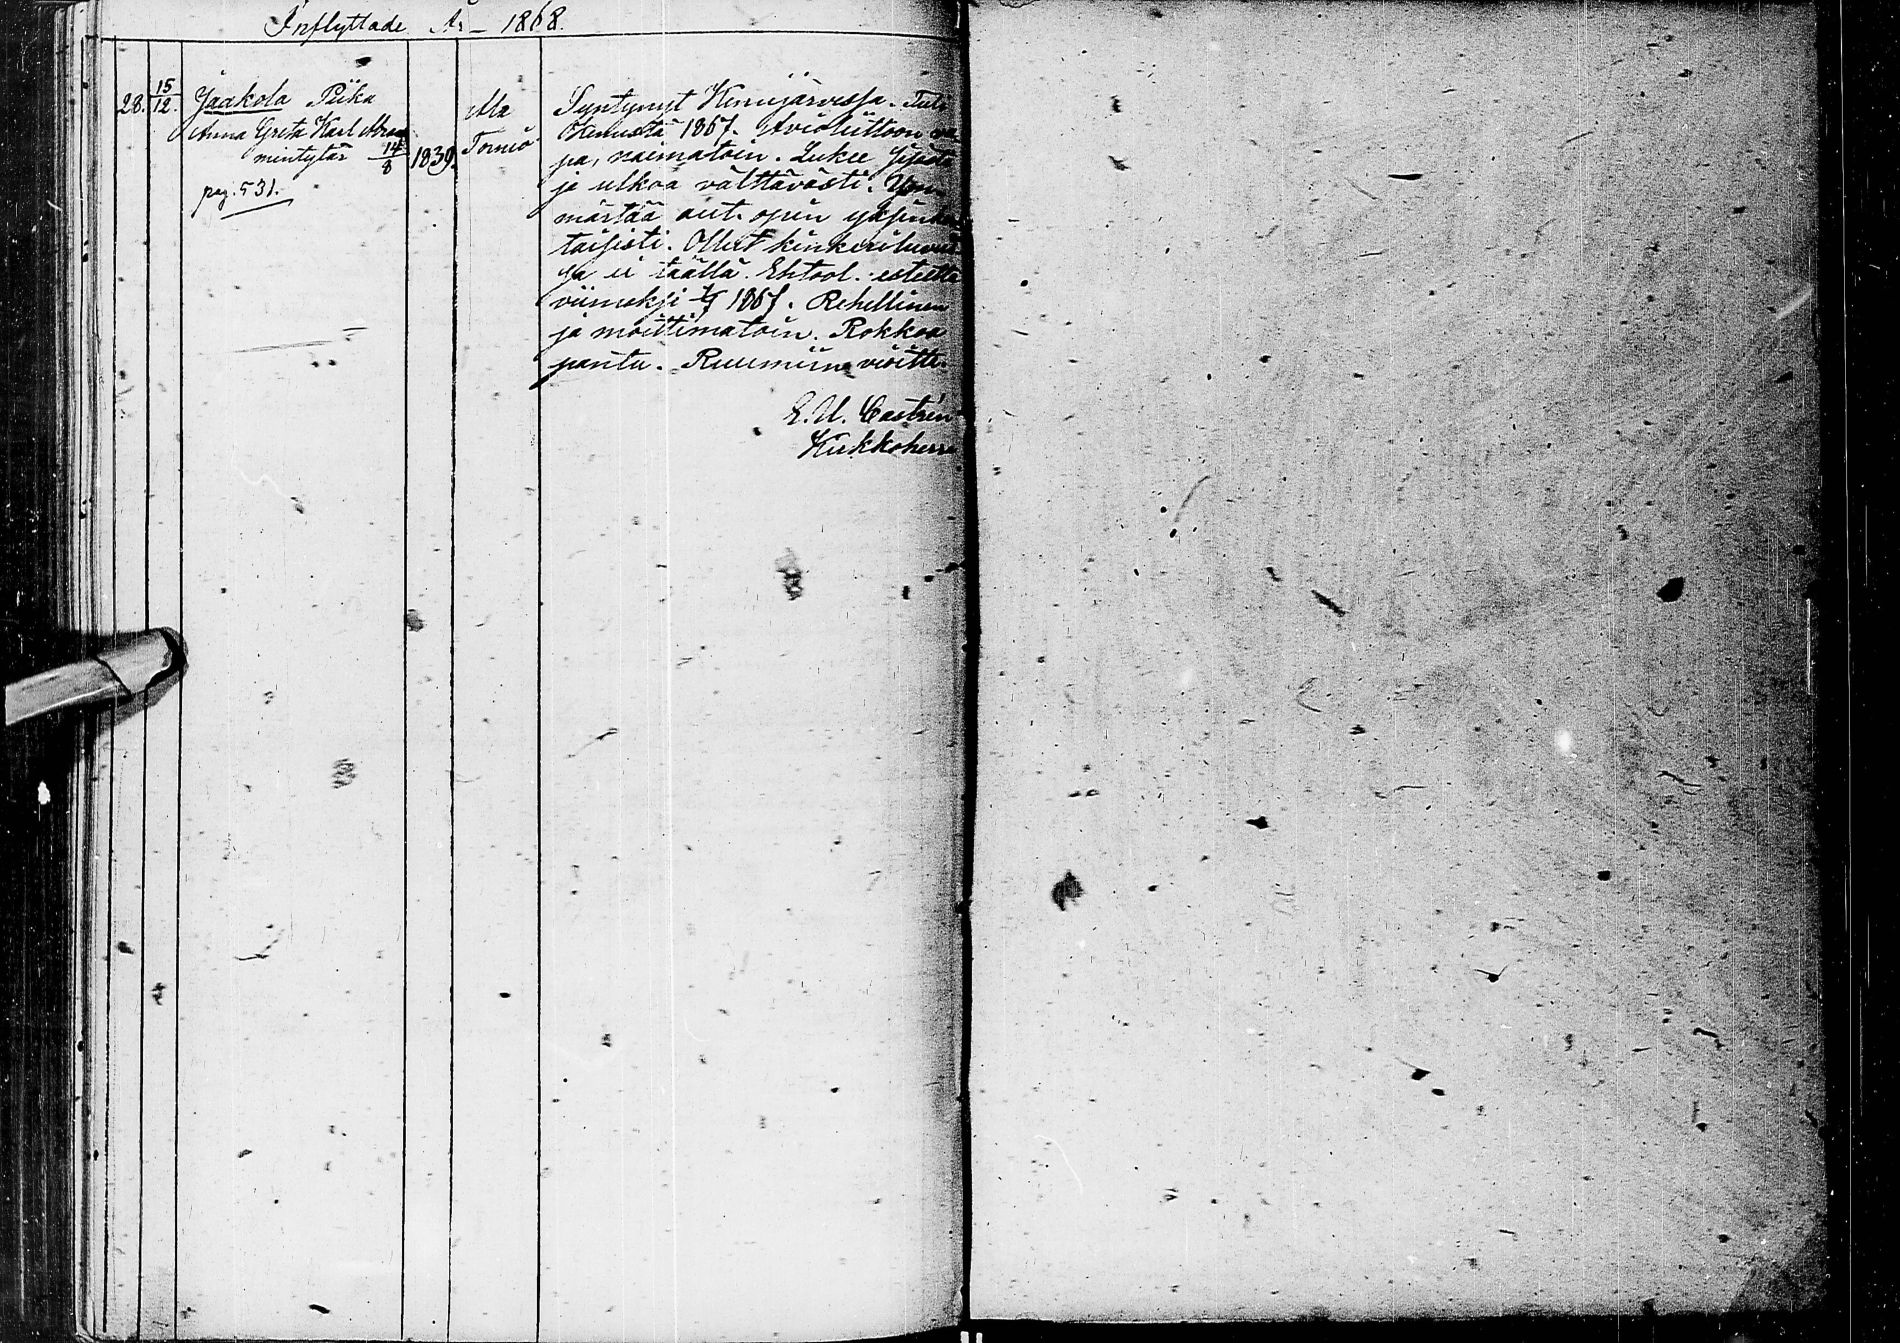 Inflyttade År 1868.
28. 15/12. Jaakola Piika
Anna Greta Karl Abra
mintytär 14/8 1839.
pag. 531.
Ala
Tornio
Syntynyt Kemijärvessä. Tuli
Kemistä 1867. Avioliittoon va
pa, naimatoin. Lukee sisästä
ja ulkoa välttävästi. Ym
märtää aut. opin yksinker
taisesti. Ollut kinkeriluvuil
la ei täällä. Ehtool. esteettä
viimeksi 1867. Rehellinen
ja moittimatoin. Rokkoa
pantu. Ruumiin vioitta.
E. U. Castrén
Kirkkoherra